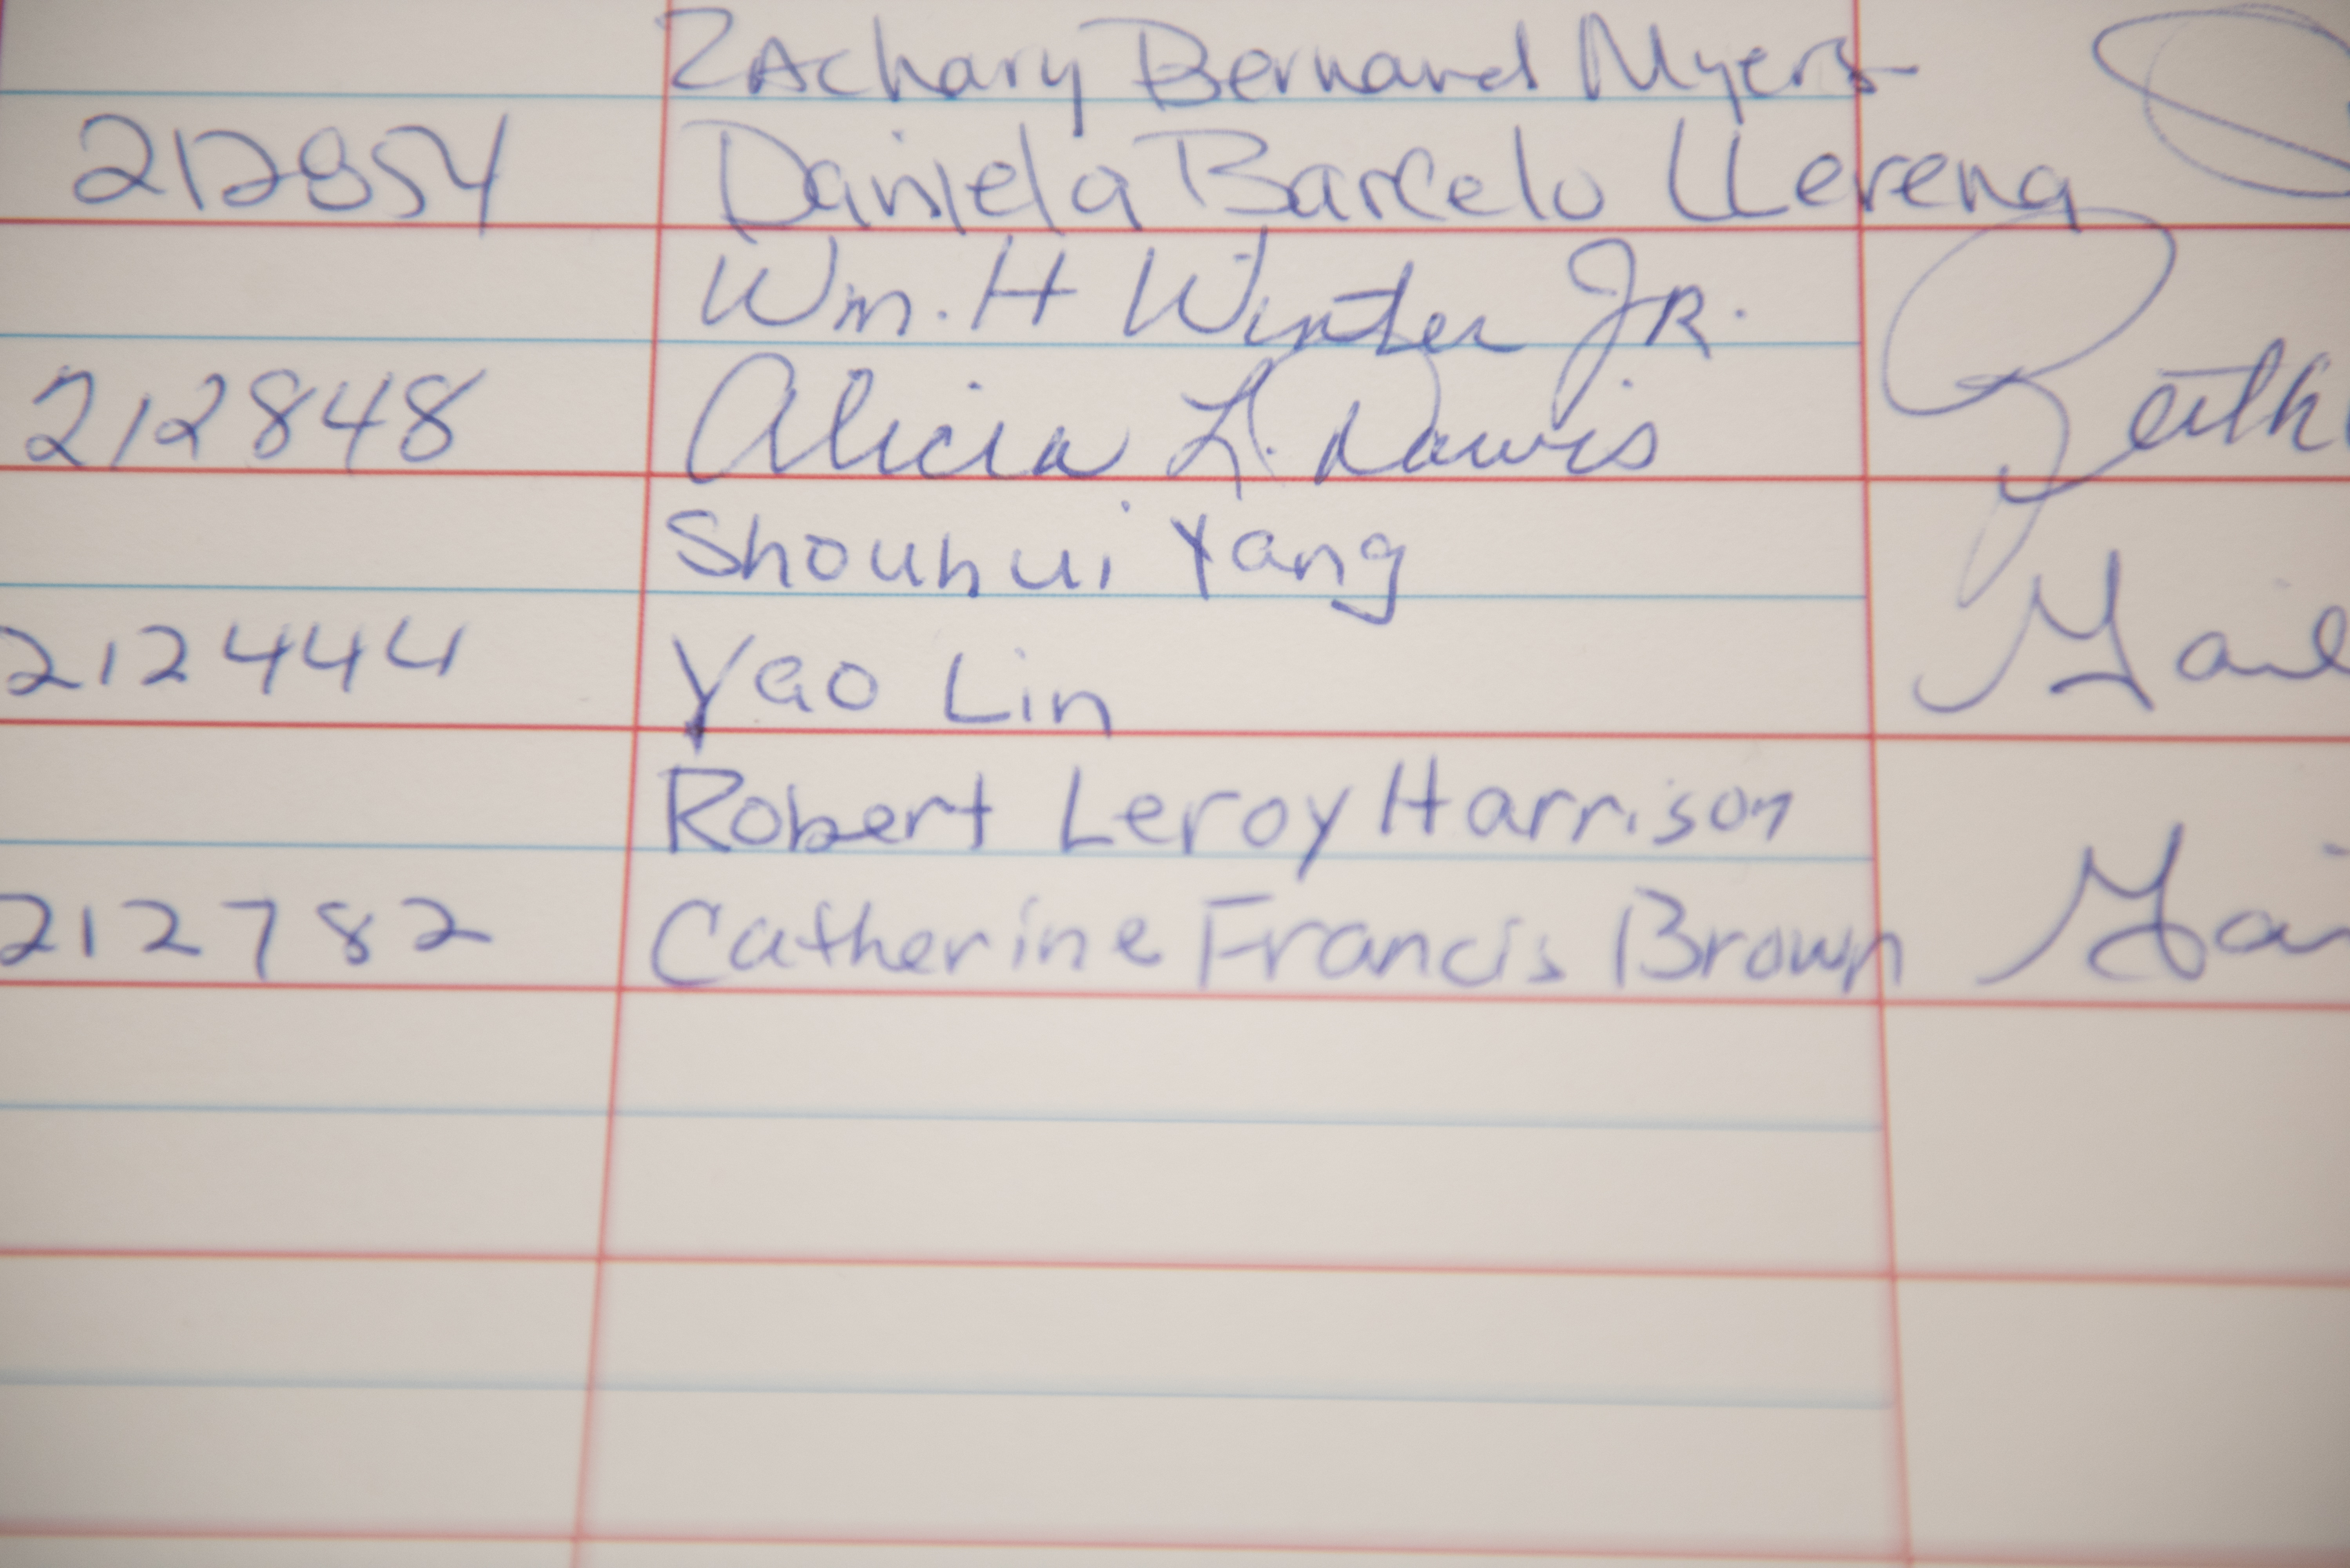 Zachary Bernard Myers
212854 Daniela Barcelo LLerena
Wm. H Winter JR.
212848 Alicia L. Davis
Shouhui Yang
212444 Yao Lin
Robert Leroy Harrison
212782 Catherine Francis Brown